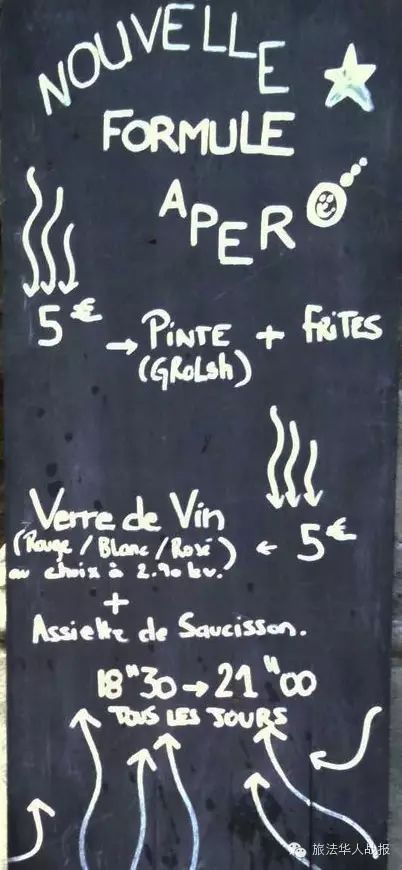 NOUVELLE
FORMULE
APERO
5€ → PINTE + FRITES
(GROLSH)
Verre de Vin
(Rouge / Blanc / Rosé) ← 5€
au choix à 2.90
+
Assiette de Saucisson.
18"30 → 21"00
TOUS LES JOURS
旅法华人战报